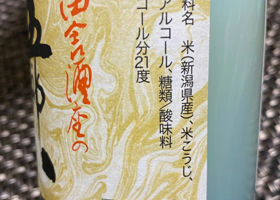 料名 米(新潟県産)、米こうじ、
アルコール、糖類/酸味料
コール分21度
田舎酒